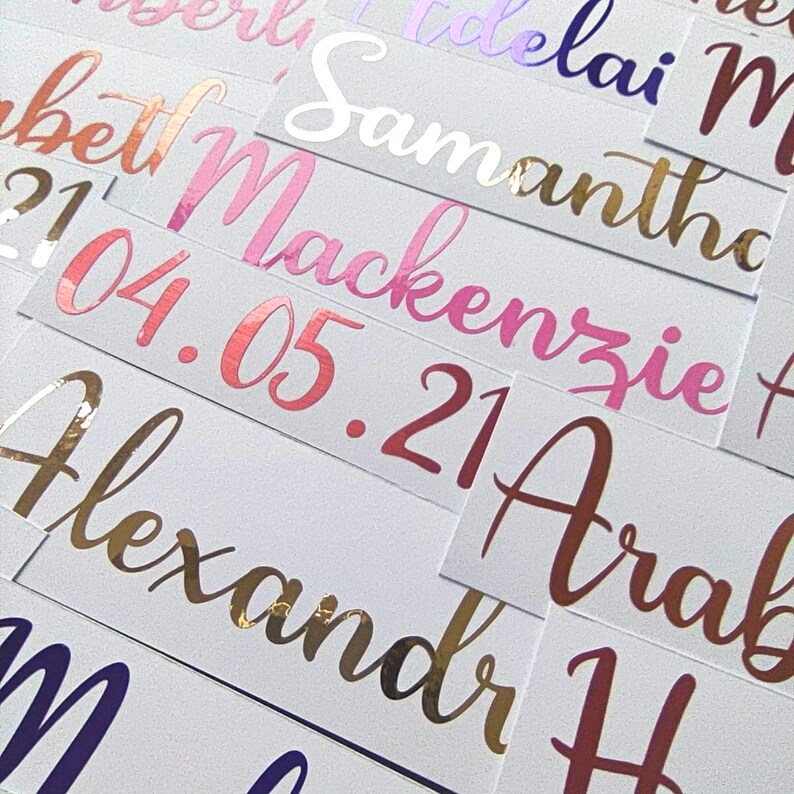 mberly
Adelai
abeth
Samantha
M
21
Mackenzie
04.05.21
Alexandr
Arab
M
H